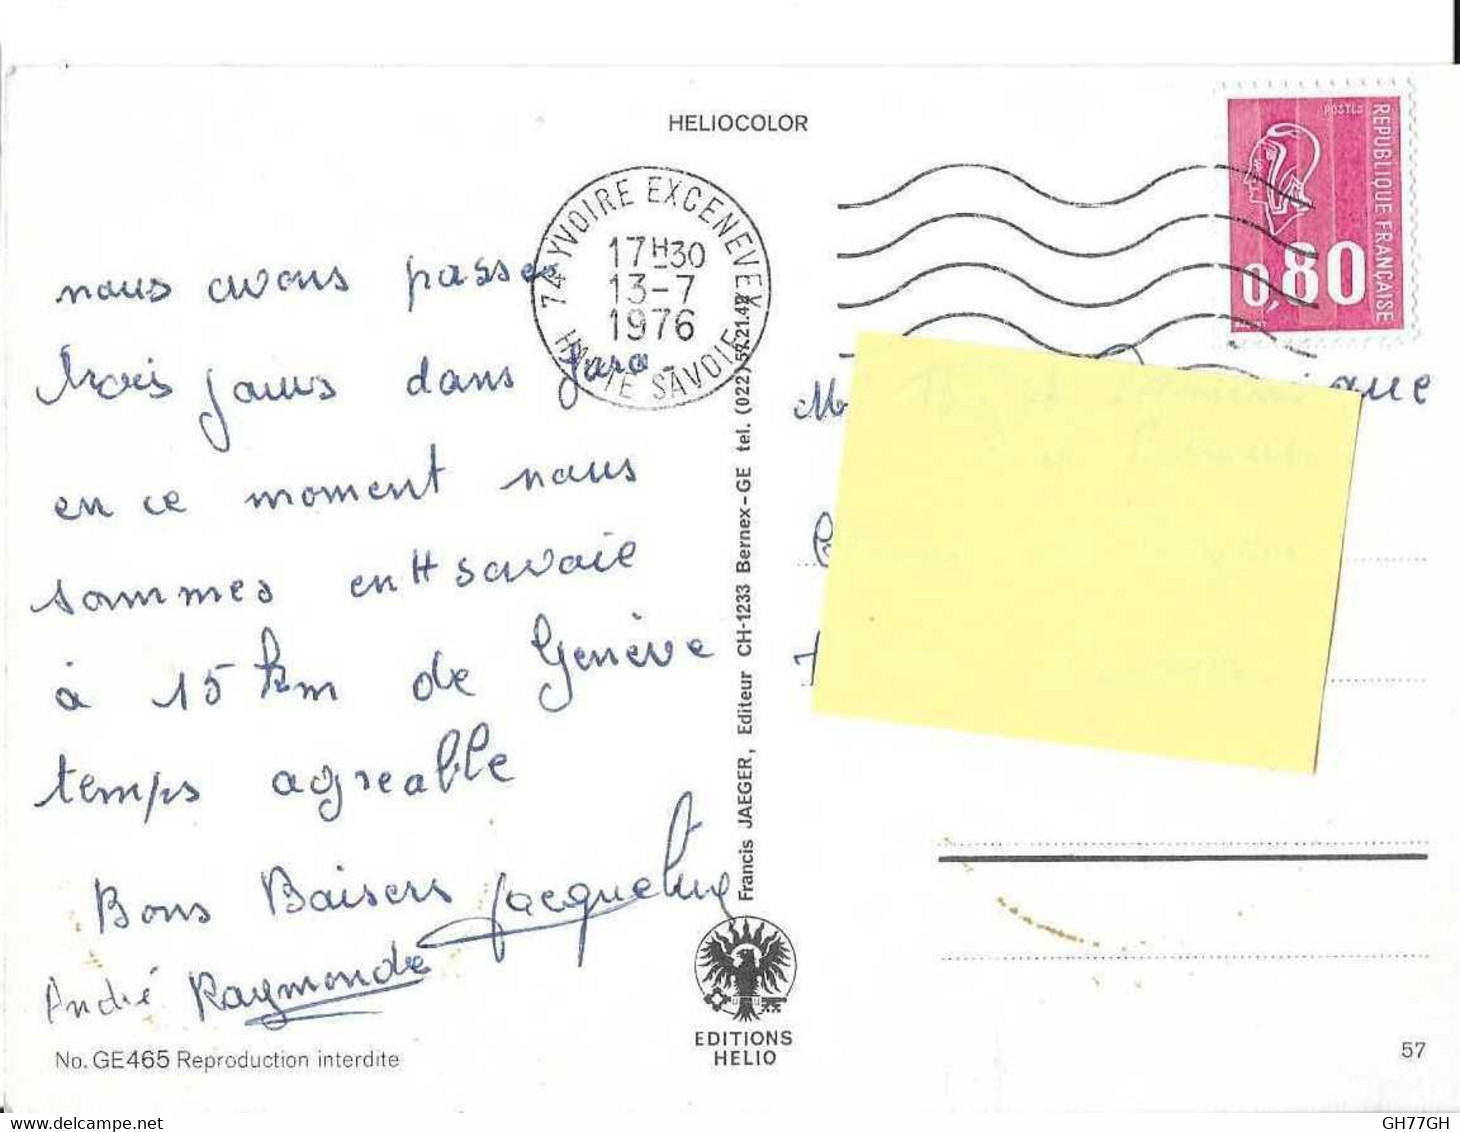 HELIOCOLOR
POSTES
REPUBLIQUE FRANÇAISE
0,80
74 YVOIRE EXCENEVEX
17H30
13-7
1976
HAUTE SAVOIE
nous avons passés
trois jours dans Jura -
en ce moment nous
sommes en Ht savoie
à 15 km de Genève
temps agreable
Bons Baisers Jacqueline
André Raymonde
No. GE465 Reproduction interdite
Francis JAEGER, Editeur CH-1233 Bernex-GE tel. (022) 57.21.42
EDITIONS
HELIO
57
GH77GH